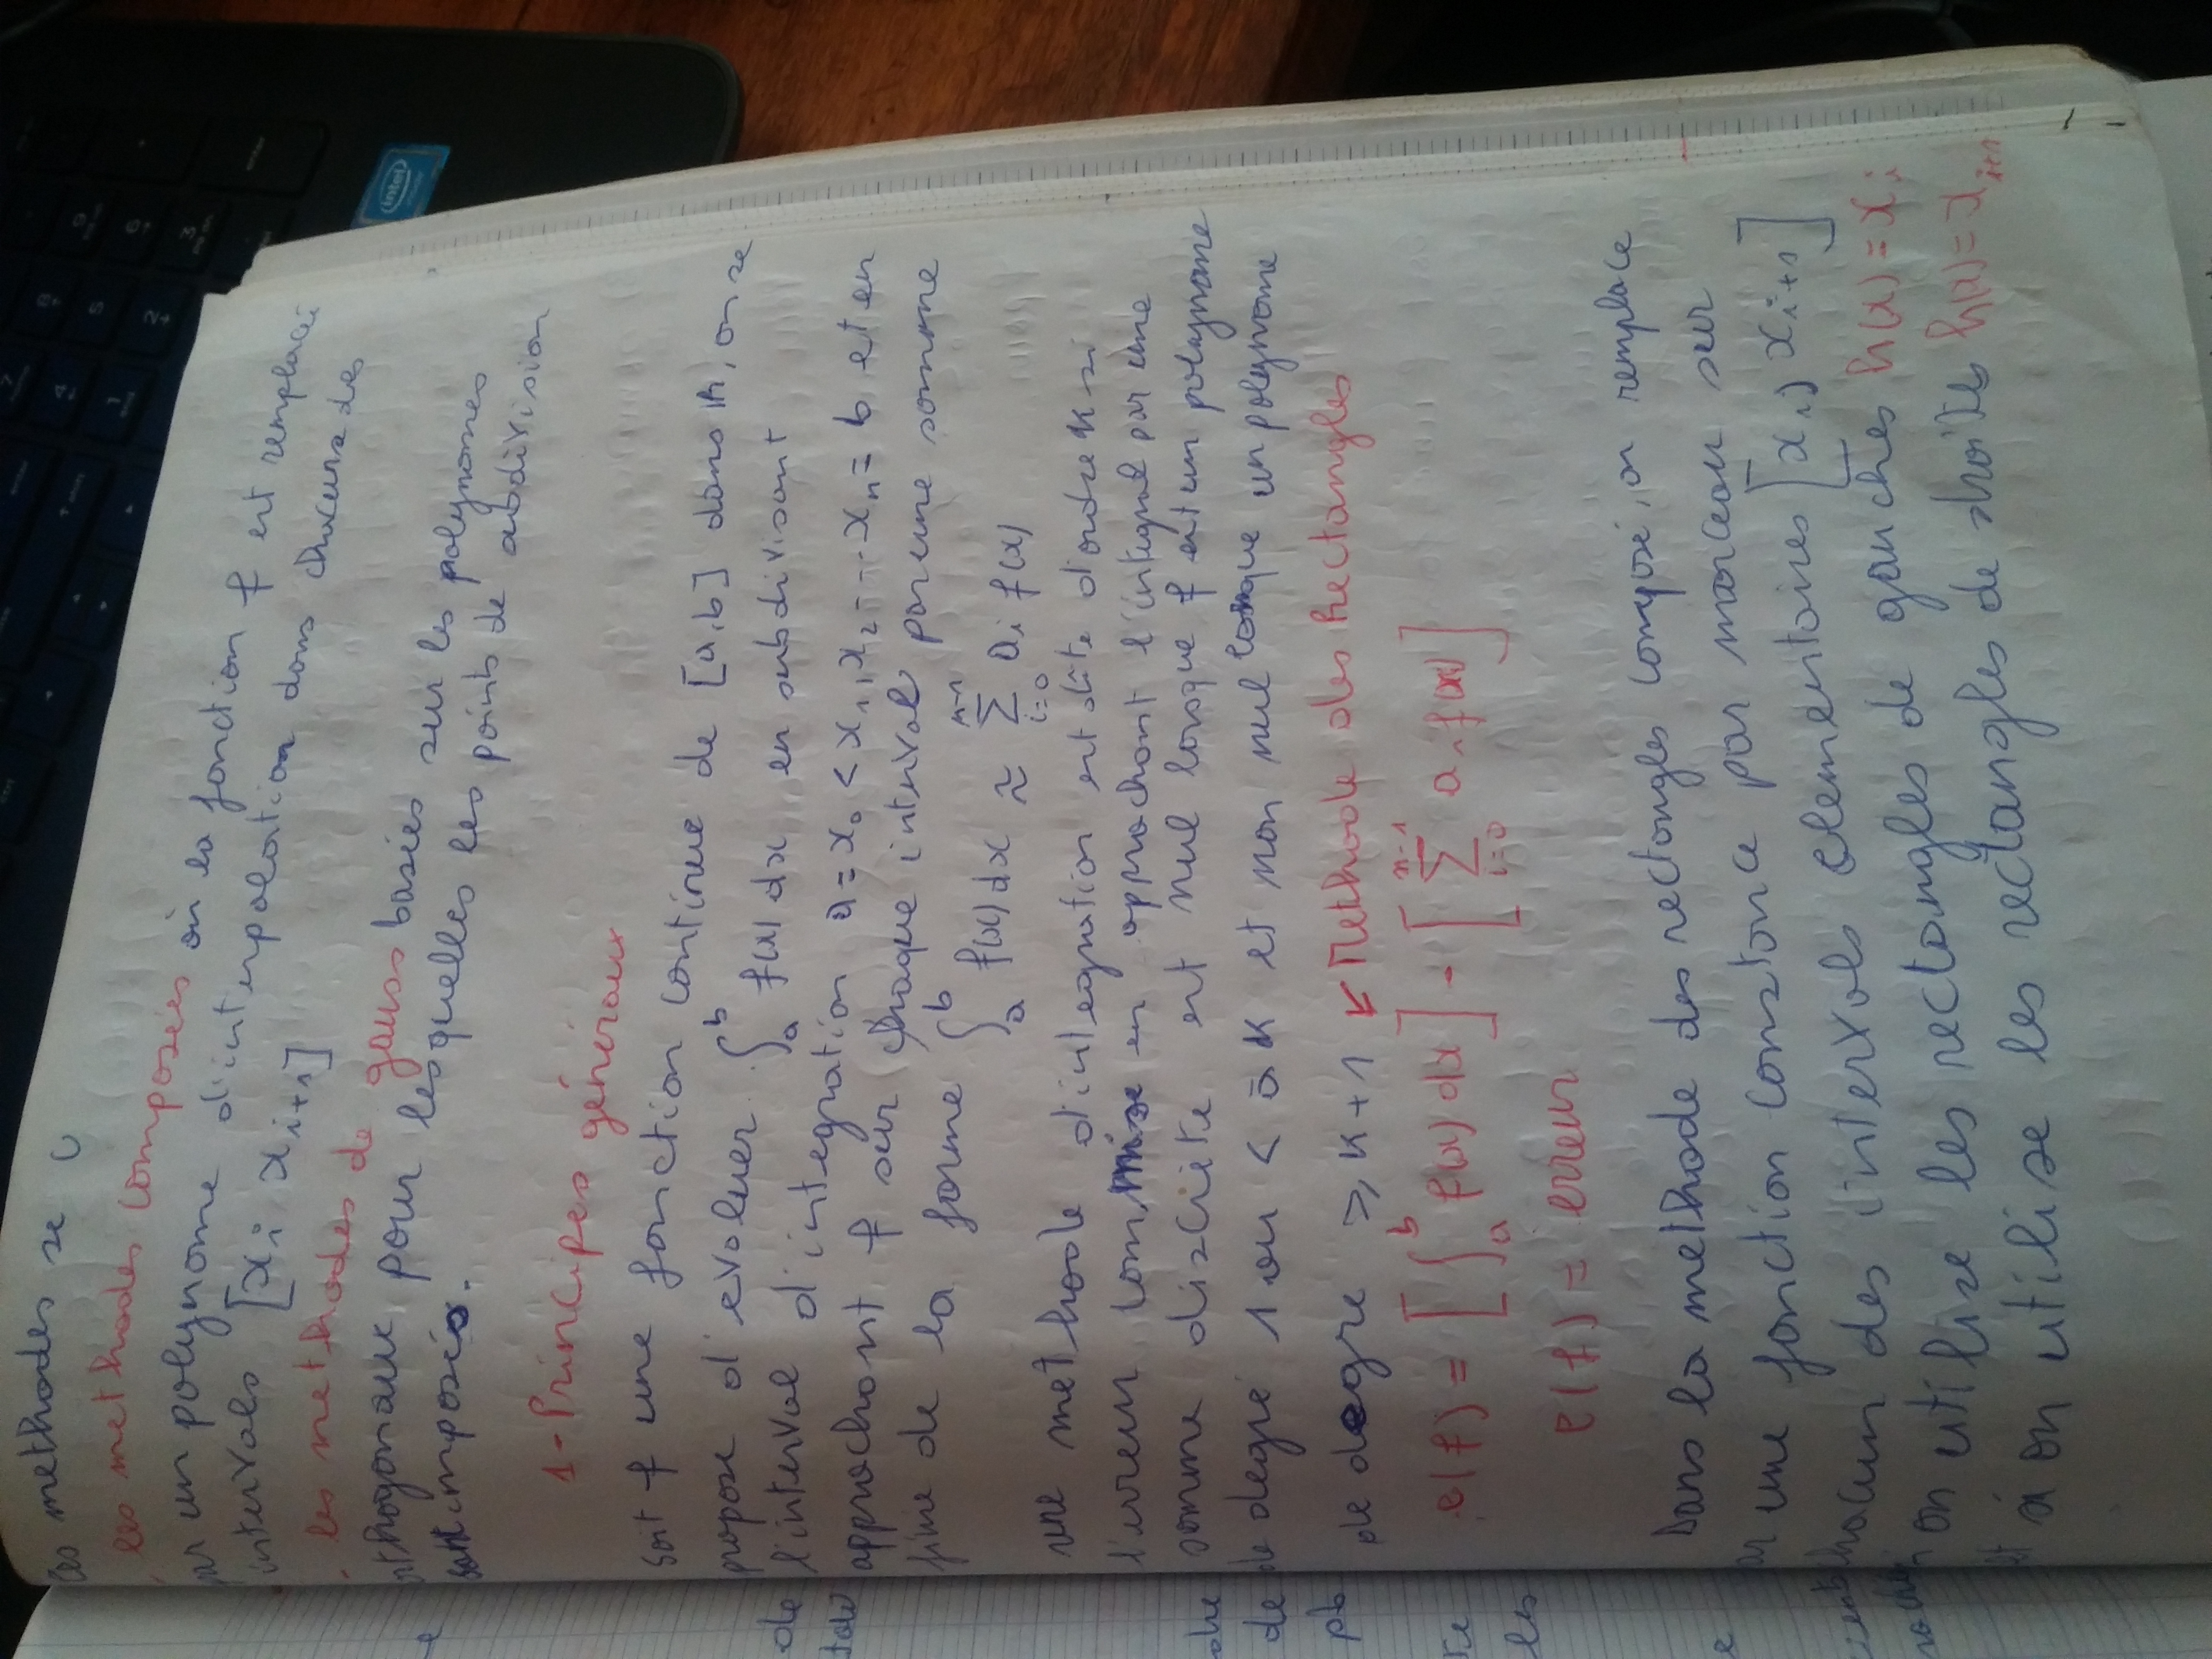 Ces methodes se
- les methodes composées où la fonction f est remplacée
par un polynome d'interpolation dans chacune des
intervals [xi xi+1]
- les methodes de gauss basées sur les polynomes
orthogonaux pour lesquelles les points de subdivision
sont imposés.
1- Principes généraux
Soit f une fonction continue de [a,b] dans IR, on se
propose d'evaluer ∫_a^b f(x) dx en subdivisant
l'interval d'integration a = x₀ < x₁, x₂ --- xₙ = b et en
approchant f sur chaque interval par une somme
finie de la forme ∫_a^b f(x) dx ≈ Σ_{i=0}^{n-1} aᵢ f(x)
une methode d'integration est dîte d'ordre K si
l'erreur commise en approchant l'integral par une
somme discrète est nul lorsque f est un polynome
de degré 1 ou < à K et non nul lorsque un polynome
de degre ⩾ K+1 ↙ Methode des Rectangles
e(f) = [∫_a^b f(x) dx] - [Σ_{i=0}^{n-1} aᵢ f(xi)]
e(f) = erreur
Dans la methode des rectangles composé, on remplace
par une fonction constance par morceau sur
chacun des intervals elementaires [xi, xi+1]
on utilise les rectangles de gauches h(x) = xi
et si on utilise les rectangles de droites h(x) = xi+1
de
de
pb
les
e
intel
inside
enter
shift
ctrl
7
home
4
1
end
8
5
2
9
6
3
enter